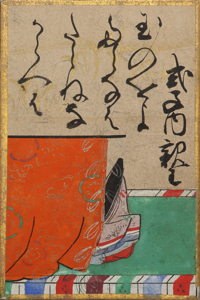 式子内親王
玉のをよ
たえなは
たえねな
からへは